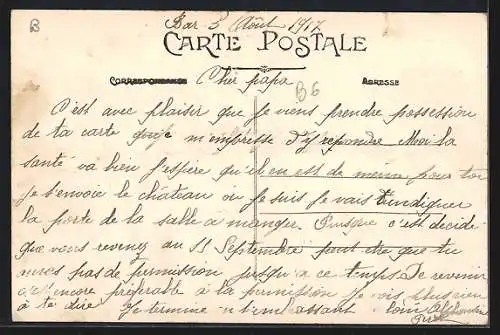 B
Bar 3 Août 1917
CARTE POSTALE
CORRESPONDANCE Cher papa ADRESSE
B6
C'est avec plaisir que je viens prendre possession
de ta carte que je m'empresse d'y repondre Moi la
santé va bien J'espère qu'il en est de même pour toi
Je t'envoie le château ou je suis Je vais t'indiquer
la porte de la salle à manger. Puisque c'est décidé
que vous revenez au 11 Septembre peut etre que tu
auras pas de permission jusqu'a ce temps De revenir
c'est encore préferable à la permission Je vois plus rien
à te dire Je termine en t'embrassant loin Alphonsine